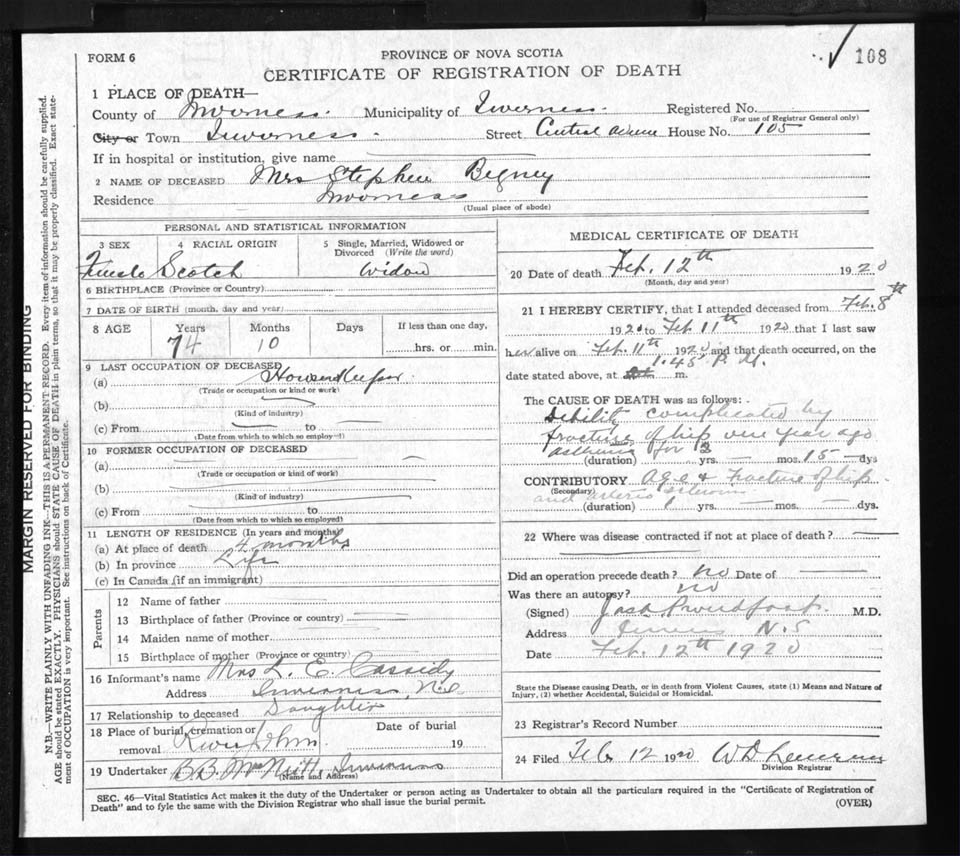 108
FORM 6
PROVINCE OF NOVA SCOTIA
CERTIFICATE OF REGISTRATION OF DEATH
1 PLACE OF DEATH—
County of Inverness Municipality of Inverness Registered No.
(For use of Registrar General only)
City or Town Inverness Street Central Avenue House No. 105
If in hospital or institution, give name
2 NAME OF DECEASED Mrs Stephen Begney
Residence Inverness
(Usual place of abode)
PERSONAL AND STATISTICAL INFORMATION
3 SEX 4 RACIAL ORIGIN 5 Single, Married, Widowed or
Divorced (Write the word)
Female Scotch Widow
6 BIRTHPLACE (Province or Country)
7 DATE OF BIRTH (month, day and year)
8 AGE Years Months Days If less than one day,
74 10 hrs. or min.
9 LAST OCCUPATION OF DECEASED
(a) Housekeeper
(Trade or occupation or kind or work)
(b)
(Kind of industry)
(c) From to
(Date from which to which so employed)
10 FORMER OCCUPATION OF DECEASED
(a)
(Trade or occupation or kind of work)
(b)
(Kind of industry)
(c) From to
(Date from which to which so employed)
11 LENGTH OF RESIDENCE (In years and months)
(a) At place of death 4 months
(b) In province Life
(c) In Canada (if an immigrant)
Parents
12 Name of father
13 Birthplace of father (Province or country)
14 Maiden name of mother
15 Birthplace of mother (Province or country)
16 Informant's name Mrs L. E. Cassidy
Address Inverness, N.S
17 Relationship to deceased Daughter
18 Place of burial, cremation or Date of burial
removal River John 19
19 Undertaker B.B. McNeill Inverness
(Name and Address)
MEDICAL CERTIFICATE OF DEATH
20 Date of death Feb. 12th 1920
(Month, day and year)
21 I HEREBY CERTIFY, that I attended deceased from Feb. 8th
1920 to Feb 11th 1920 that I last saw
her alive on Feb. 11th 1920 and that death occurred, on the
1.45 P.M.
date stated above, at m.
The CAUSE OF DEATH was as follows:
Debility complicated by
fracture of hip one year ago
asthenia for
(duration) yrs. mos. 15 dys
CONTRIBUTORY Age & Fracture of hip
(Secondary) and arterio sclerosis
(duration) yrs. mos. dys.
22 Where was disease contracted if not at place of death?
Did an operation precede death? no Date of
Was there an autopsy? no
(Signed) Jas A Proudfoot M.D.
Address N.S
Date Feb. 12th 1920
State the Disease causing Death, or in death from Violent Causes, state (1) Means and Nature of
Injury, (2) whether Accidental, Suicidal or Homicidal.
23 Registrar's Record Number
24 Filed Feb 12 1920 W D
Division Registrar
SEC. 46—Vital Statistics Act makes it the duty of the Undertaker or person acting as Undertaker to obtain all the particulars required in the "Certificate of Registration of
Death" and to fyle the same with the Division Registrar who shall issue the burial permit.
(OVER)
MARGIN RESERVED FOR BINDING
N.B.—WRITE PLAINLY WITH UNFADING INK—THIS IS A PERMANENT RECORD. Every item of information should be carefully supplied.
AGE should be stated EXACTLY. PHYSICIANS should STATE CAUSE OF DEATH in plain terms, so that it may be properly classified. Exact state-
ment of OCCUPATION is very important. See instructions on back of Certificate.